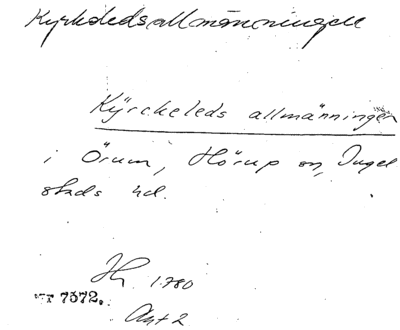 Kyrkoledsallmänningen
Kÿrckeleds allmänningen
i Örum, Hörup sn, Ingel
stads hd.
1780
7572.
Akt 2